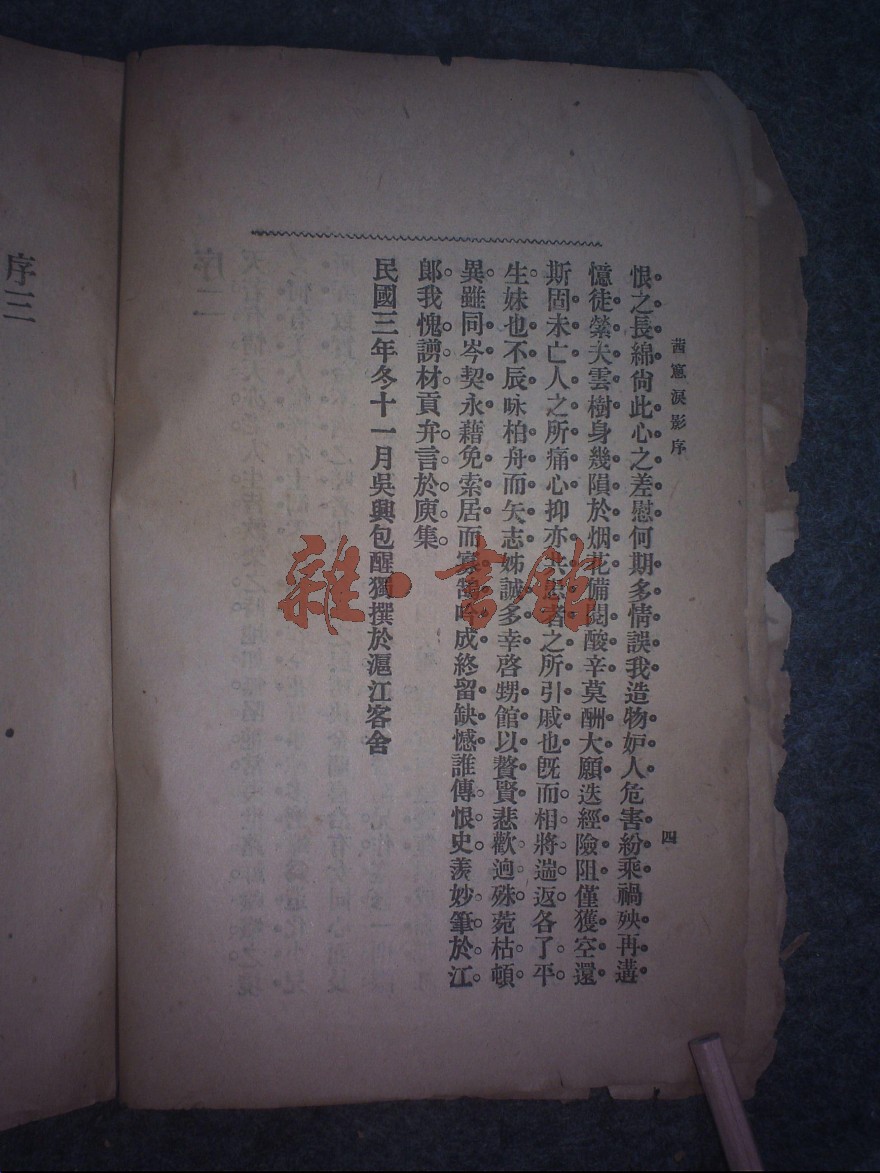 茜窻淚影序
四
恨之長綿尙此心之差慰何期多情誤我造物妒人危害紛乘禍殃再遘
憶徒縈夫雲樹身幾隕於烟花備閱酸辛莫酬大願迭經險阻僅獲空還
斯固未亡人之所痛心抑亦共患者之所引戚也旣而相將遄返各了平
生妹也不辰咏柏舟而矢志姊誠多幸啓甥館以贅賢悲歡逈殊菀枯頓
異雖同岑契永藉免索居而寡鵠吟成終留缺憾誰傳恨史羨妙筆於江
郎我愧謭材貢弁言於庾集
民國三年冬十一月吳興包醒獨撰於滬江客舍
序三
雜·書館